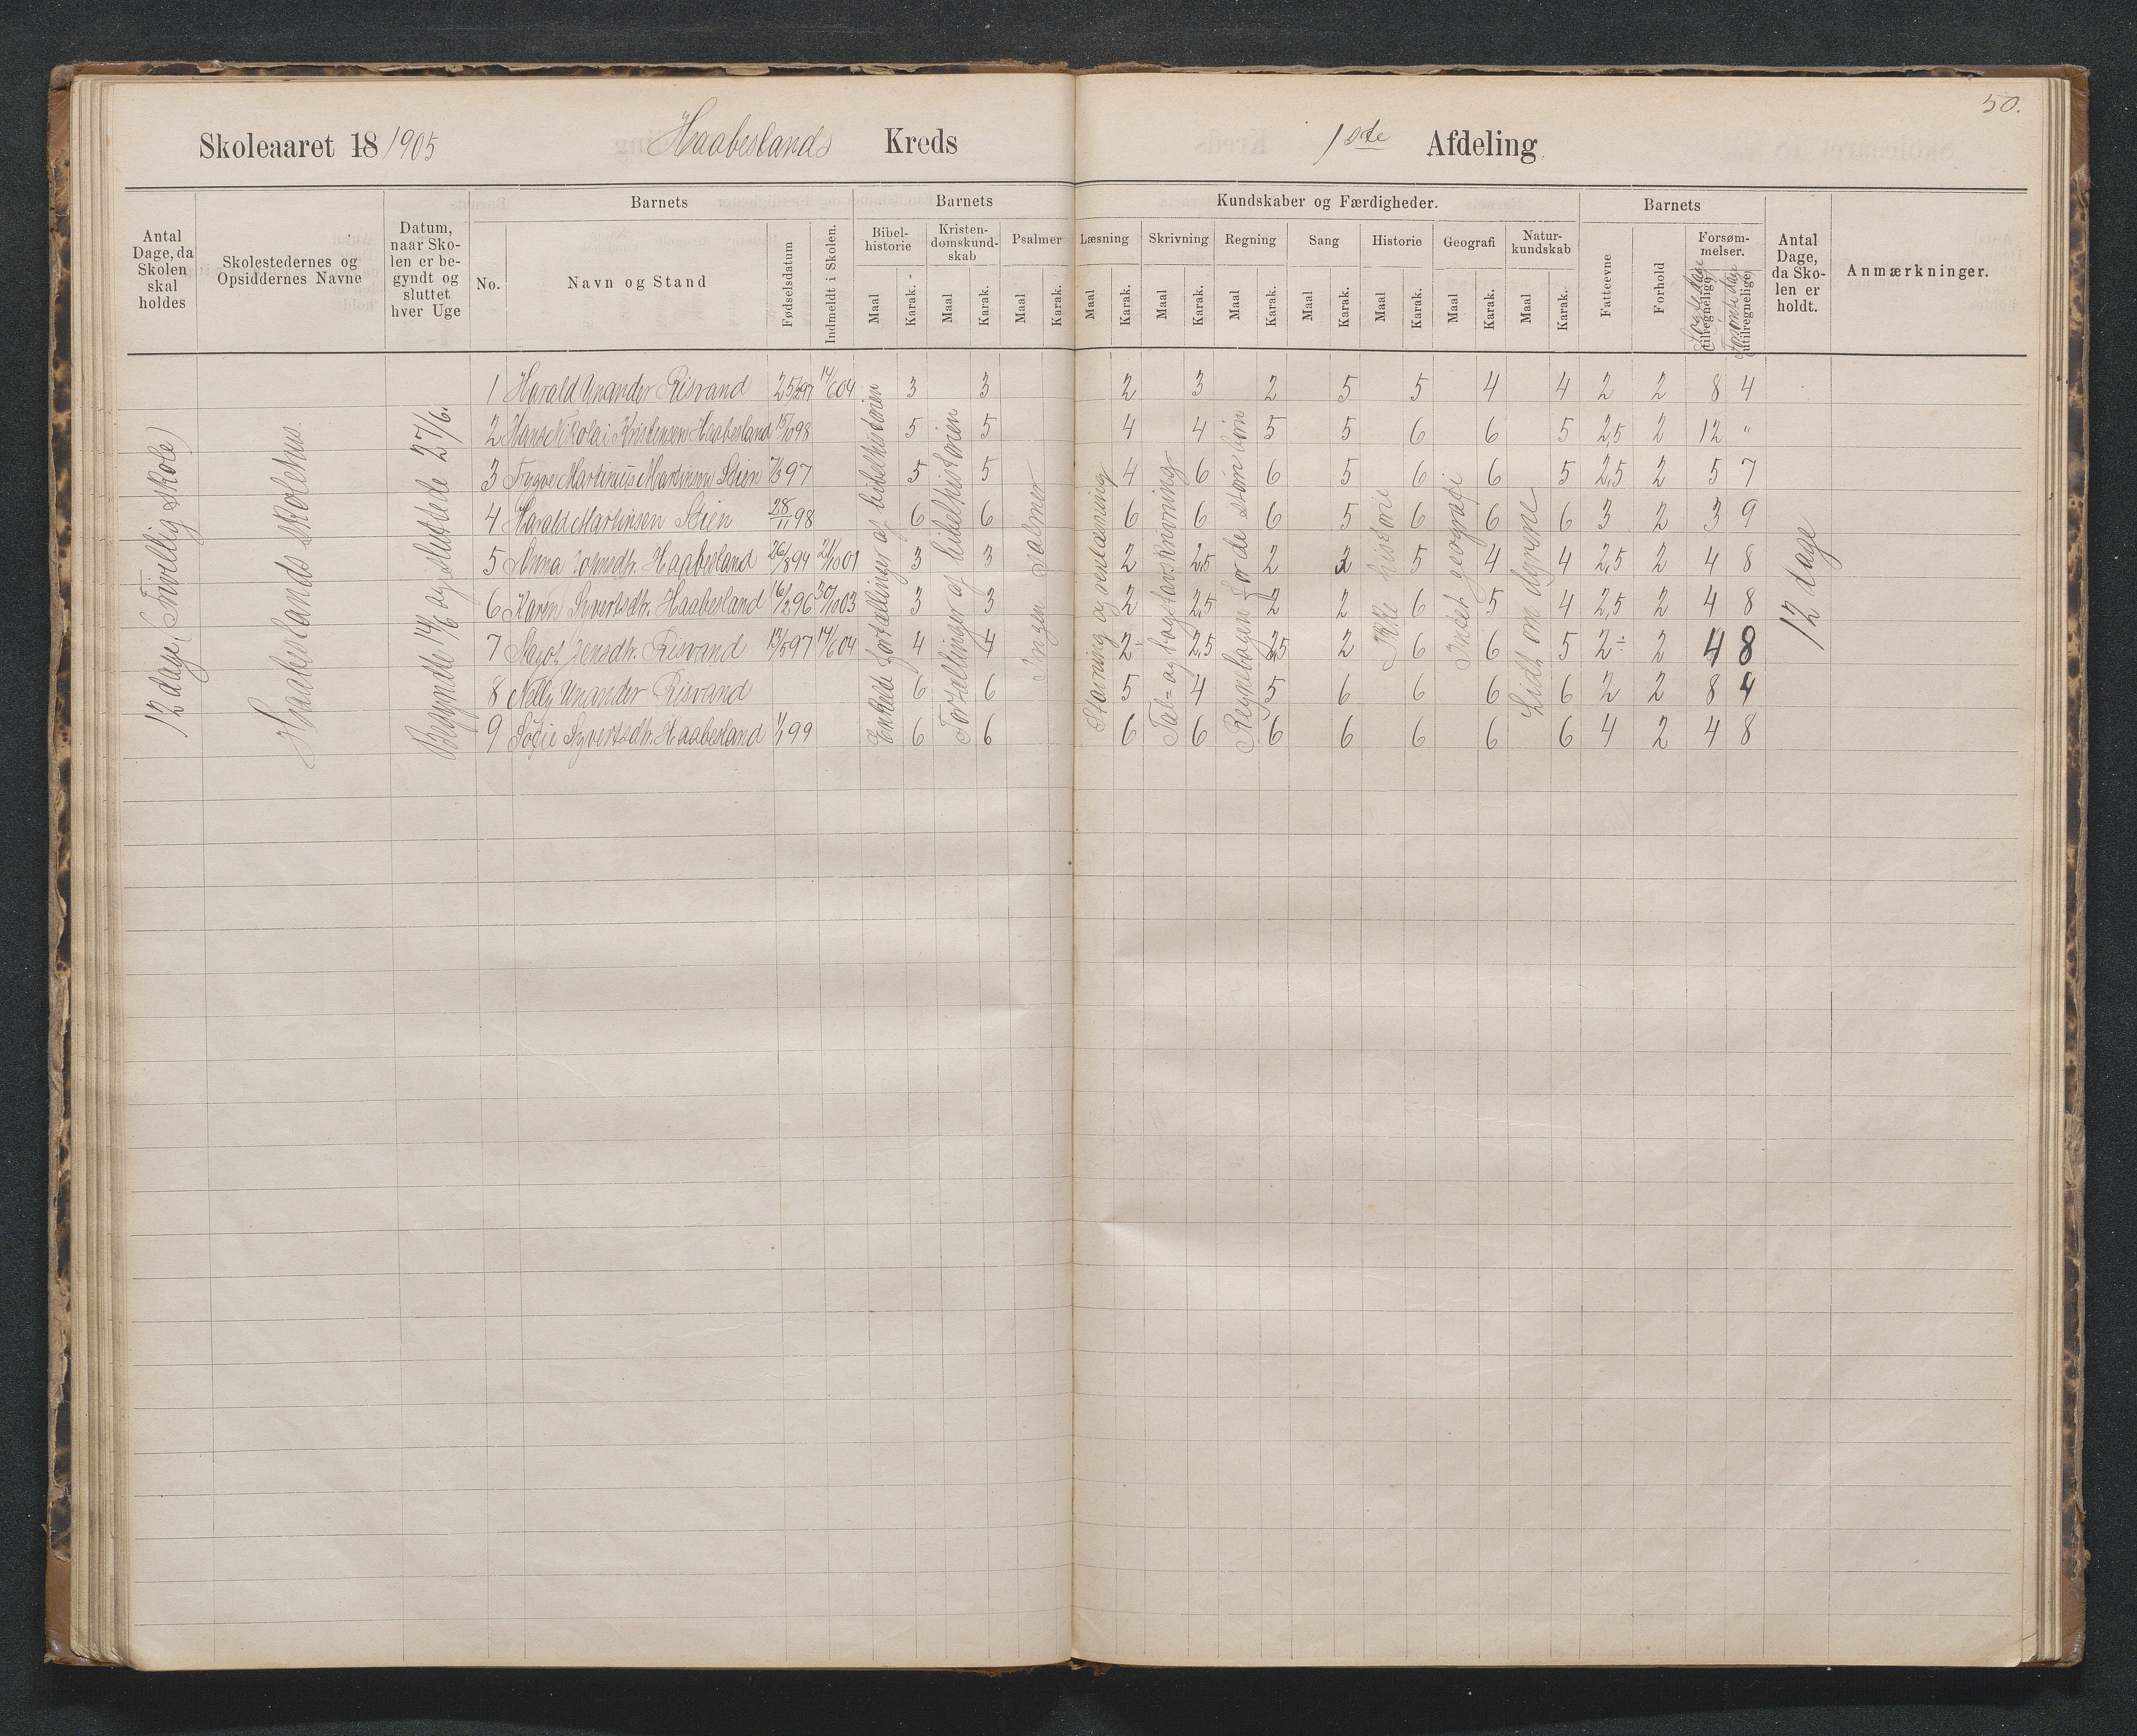 50.
Skoleaaret 18 1905 Haabeslands Kreds 1ste Afdeling.
Antal Dage, da Skolen skal holdes
Skolestedernes og Opsiddernes Navne
Datum, naar Skolen er begyndt og sluttet hver Uge
Barnets
No.
Navn og Stand
Fødselsdatum
Indmeldt i Skolen.
Barnets Kundskaber og Færdigheder.
Bibelhistorie Maal Karak.
Kristendomskundskab Maal Karak.
Psalmer Maal Karak.
Læsning Maal Karak.
Skrivning Maal Karak.
Regning Maal Karak.
Sang Maal Karak.
Historie Maal Karak.
Geografi Maal Karak.
Naturkundskab Maal Karak.
Barnets
Fatteevne
Forhold
Forsømmelser.
Søgte dage tilregnelige
Forsømte dage utilregnelige
Antal Dage, da Skolen er holdt.
Anmærkninger.
12 dage (Frivillig skole)
Haabeslands skolehus.
Begyndte 14/6 og sluttede 27/6.
Enkelte fortællinger af bibelhistorien
Fortællinger af bibelhistorien
Ingen salmer
Stavning og renlæsning
Tal- og bogstavskrivning
Regnebogen for de større børn
Ikke historie
Intet geografi
Lidt om dyrene
12 dage
1 Harald Unander Risvand 25/2 97 14/6 04 3 3 2 3 2 5 5 4 4 2 2 8 4
2 Hans Nikolai Kristensen Haabesland 15/10 98 5 5 4 4 5 5 6 6 5 2,5 2 12 "
3 Trygve Martinius Martinsen Stien 7/3 97 5 5 4 6 6 5 6 6 5 2,5 2 5 7
4 Harald Martinsen Stien 28/11 98 6 6 6 6 6 5 6 6 6 3 2 3 9
5 Anna Johnsdtr. Haabesland 26/8 94 21/10 01 3 3 2 2,5 2 2 5 4 4 2,5 2 4 8
6 Karen Syvertsdtr. Haabesland 16/2 96 30/10 03 3 3 2 2,5 2 2 6 5 4 2,5 2 4 8
7 Jensdtr. Risvand 13/5 97 14/6 04 4 4 2÷ 2,5 2,5 2 6 6 5 2÷ 2 4 8
8 Nelly Unander Risvand 6 6 5 4 5 6 6 6 6 2 2 8 4
9 Sofie Syvertsdtr. Haabesland 1/1 99 6 6 6 6 6 6 6 6 6 4 2 4 8